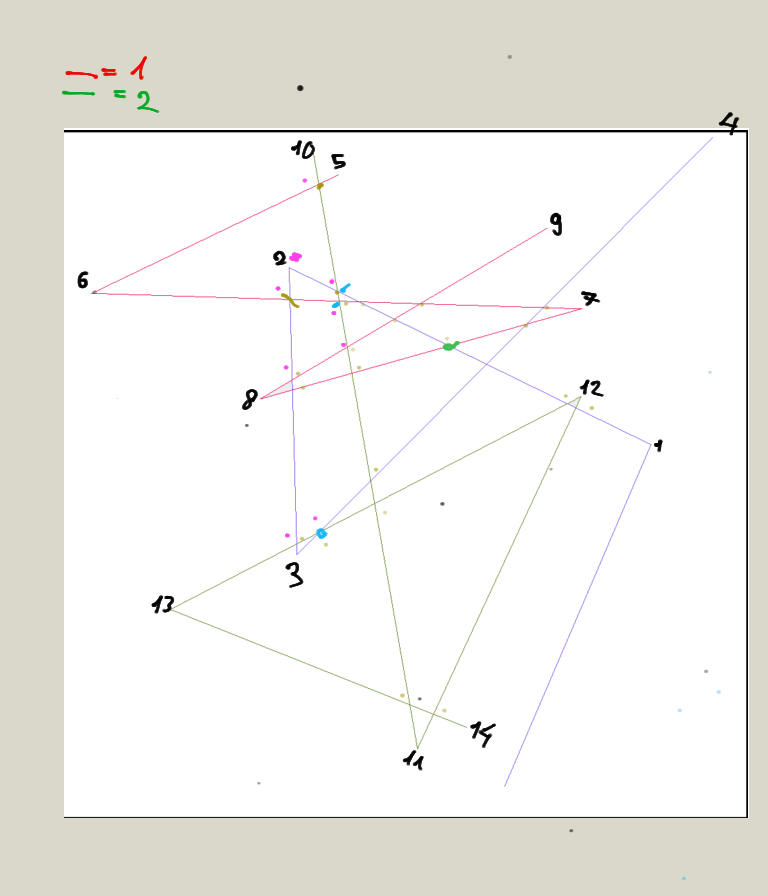 = 1
= 2
4
10
5
9
2
6
7
12
8
1
3
13
14
11